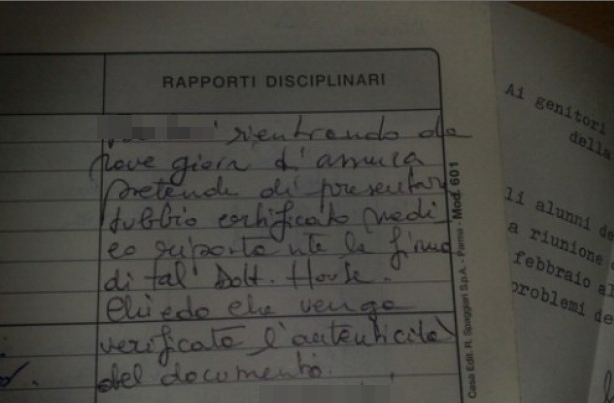 RAPPORTI DISCIPLINARI
rientrando da
nove giorni d'assenza
pretende di presentar
dubbio certificato medi
co riportante la firma
di tal Dott. House.
Chiedo che venga
verificata l'autenticità
del documento.
Casa Edit. R. Spaggiari S.p.A. - Parma - Mod. 601
Ai genitori
della
li alunni de
a riunione
febbraio al
problemi de